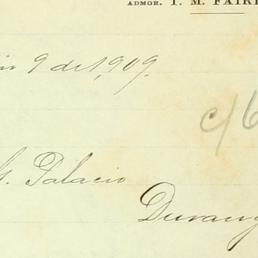 ADMOR. T. M. FAIR
9 de 1,909.
c/6
G. Palacio
Durang